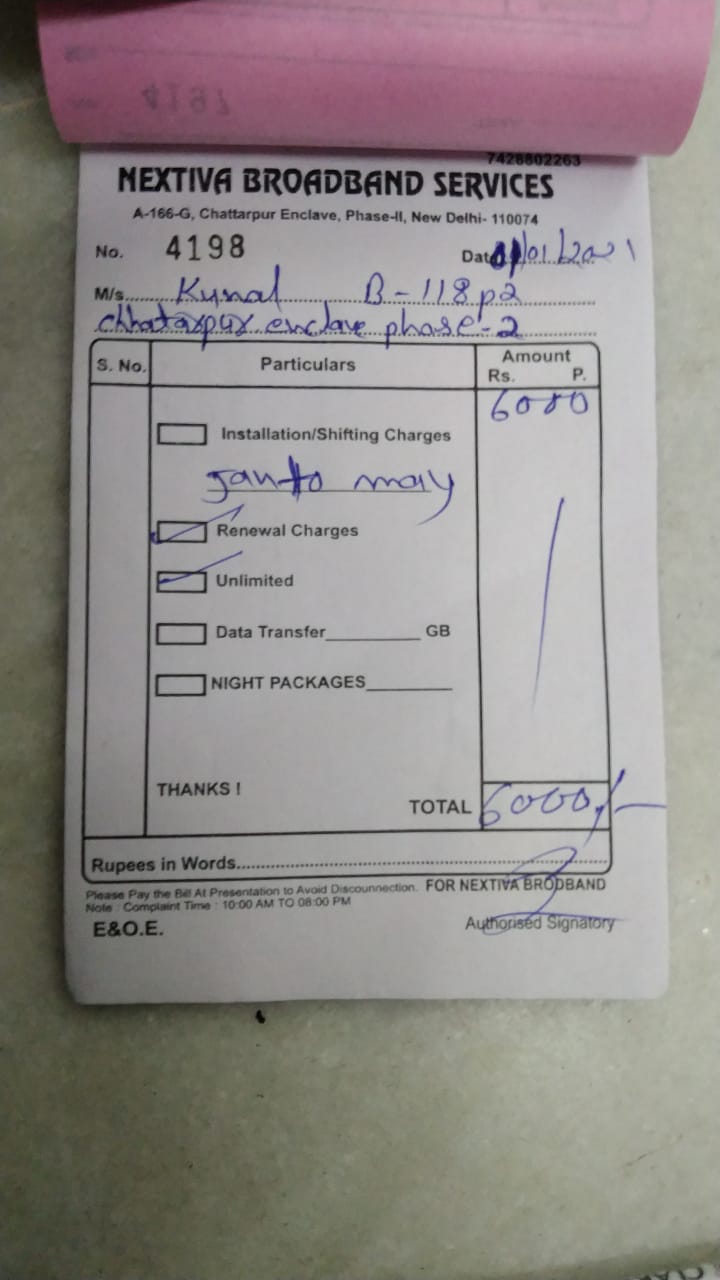 4197
7428802263
NEXTIVA BROADBAND SERVICES
A-166-G, Chattarpur Enclave, Phase-II, New Delhi- 110074
No. 4198 Date 01/01/2021
M/s. Kunal B-118 p2
chhatarpur enclave phase-2
S. No. Particulars Amount
Rs. P.
6000
Installation/Shifting Charges
Jan to may
Renewal Charges
Unlimited
Data Transfer GB
NIGHT PACKAGES
THANKS !
TOTAL 6000/-
Rupees in Words
Please Pay the Bill At Presentation to Avoid Discounnection. FOR NEXTIVA BRODBAND
Note : Complaint Time : 10:00 AM TO 08:00 PM
E&O.E. Authorised Signatory